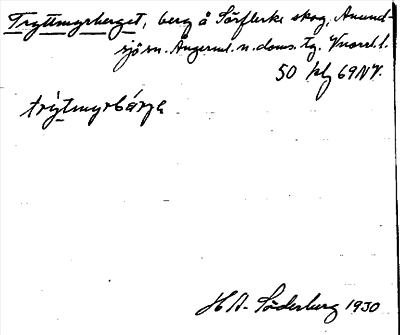 Tryttmyrberget, berg å Sörflerke skog, Anund-
sjö sn. Ångerml. n. doms. tg. Vnorrl. l.
50 kbl 69 NV.
trýtmyrbárjə
H A- Söderberg 1930